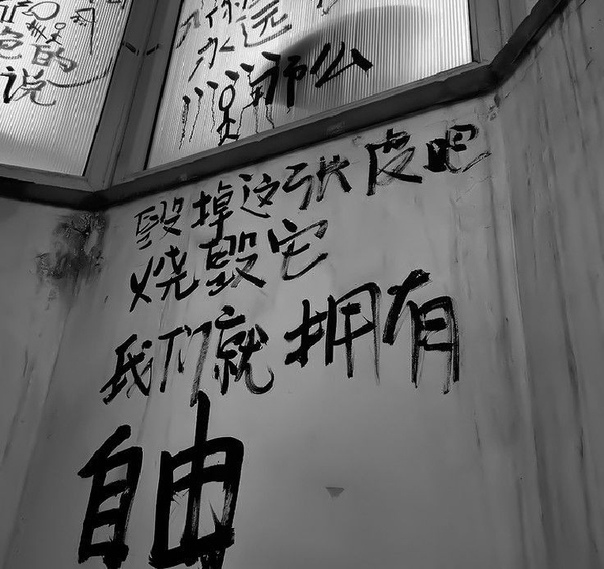 色的
说
永远
那么
毁掉这张皮吧
烧毁它
我们就拥有
自由